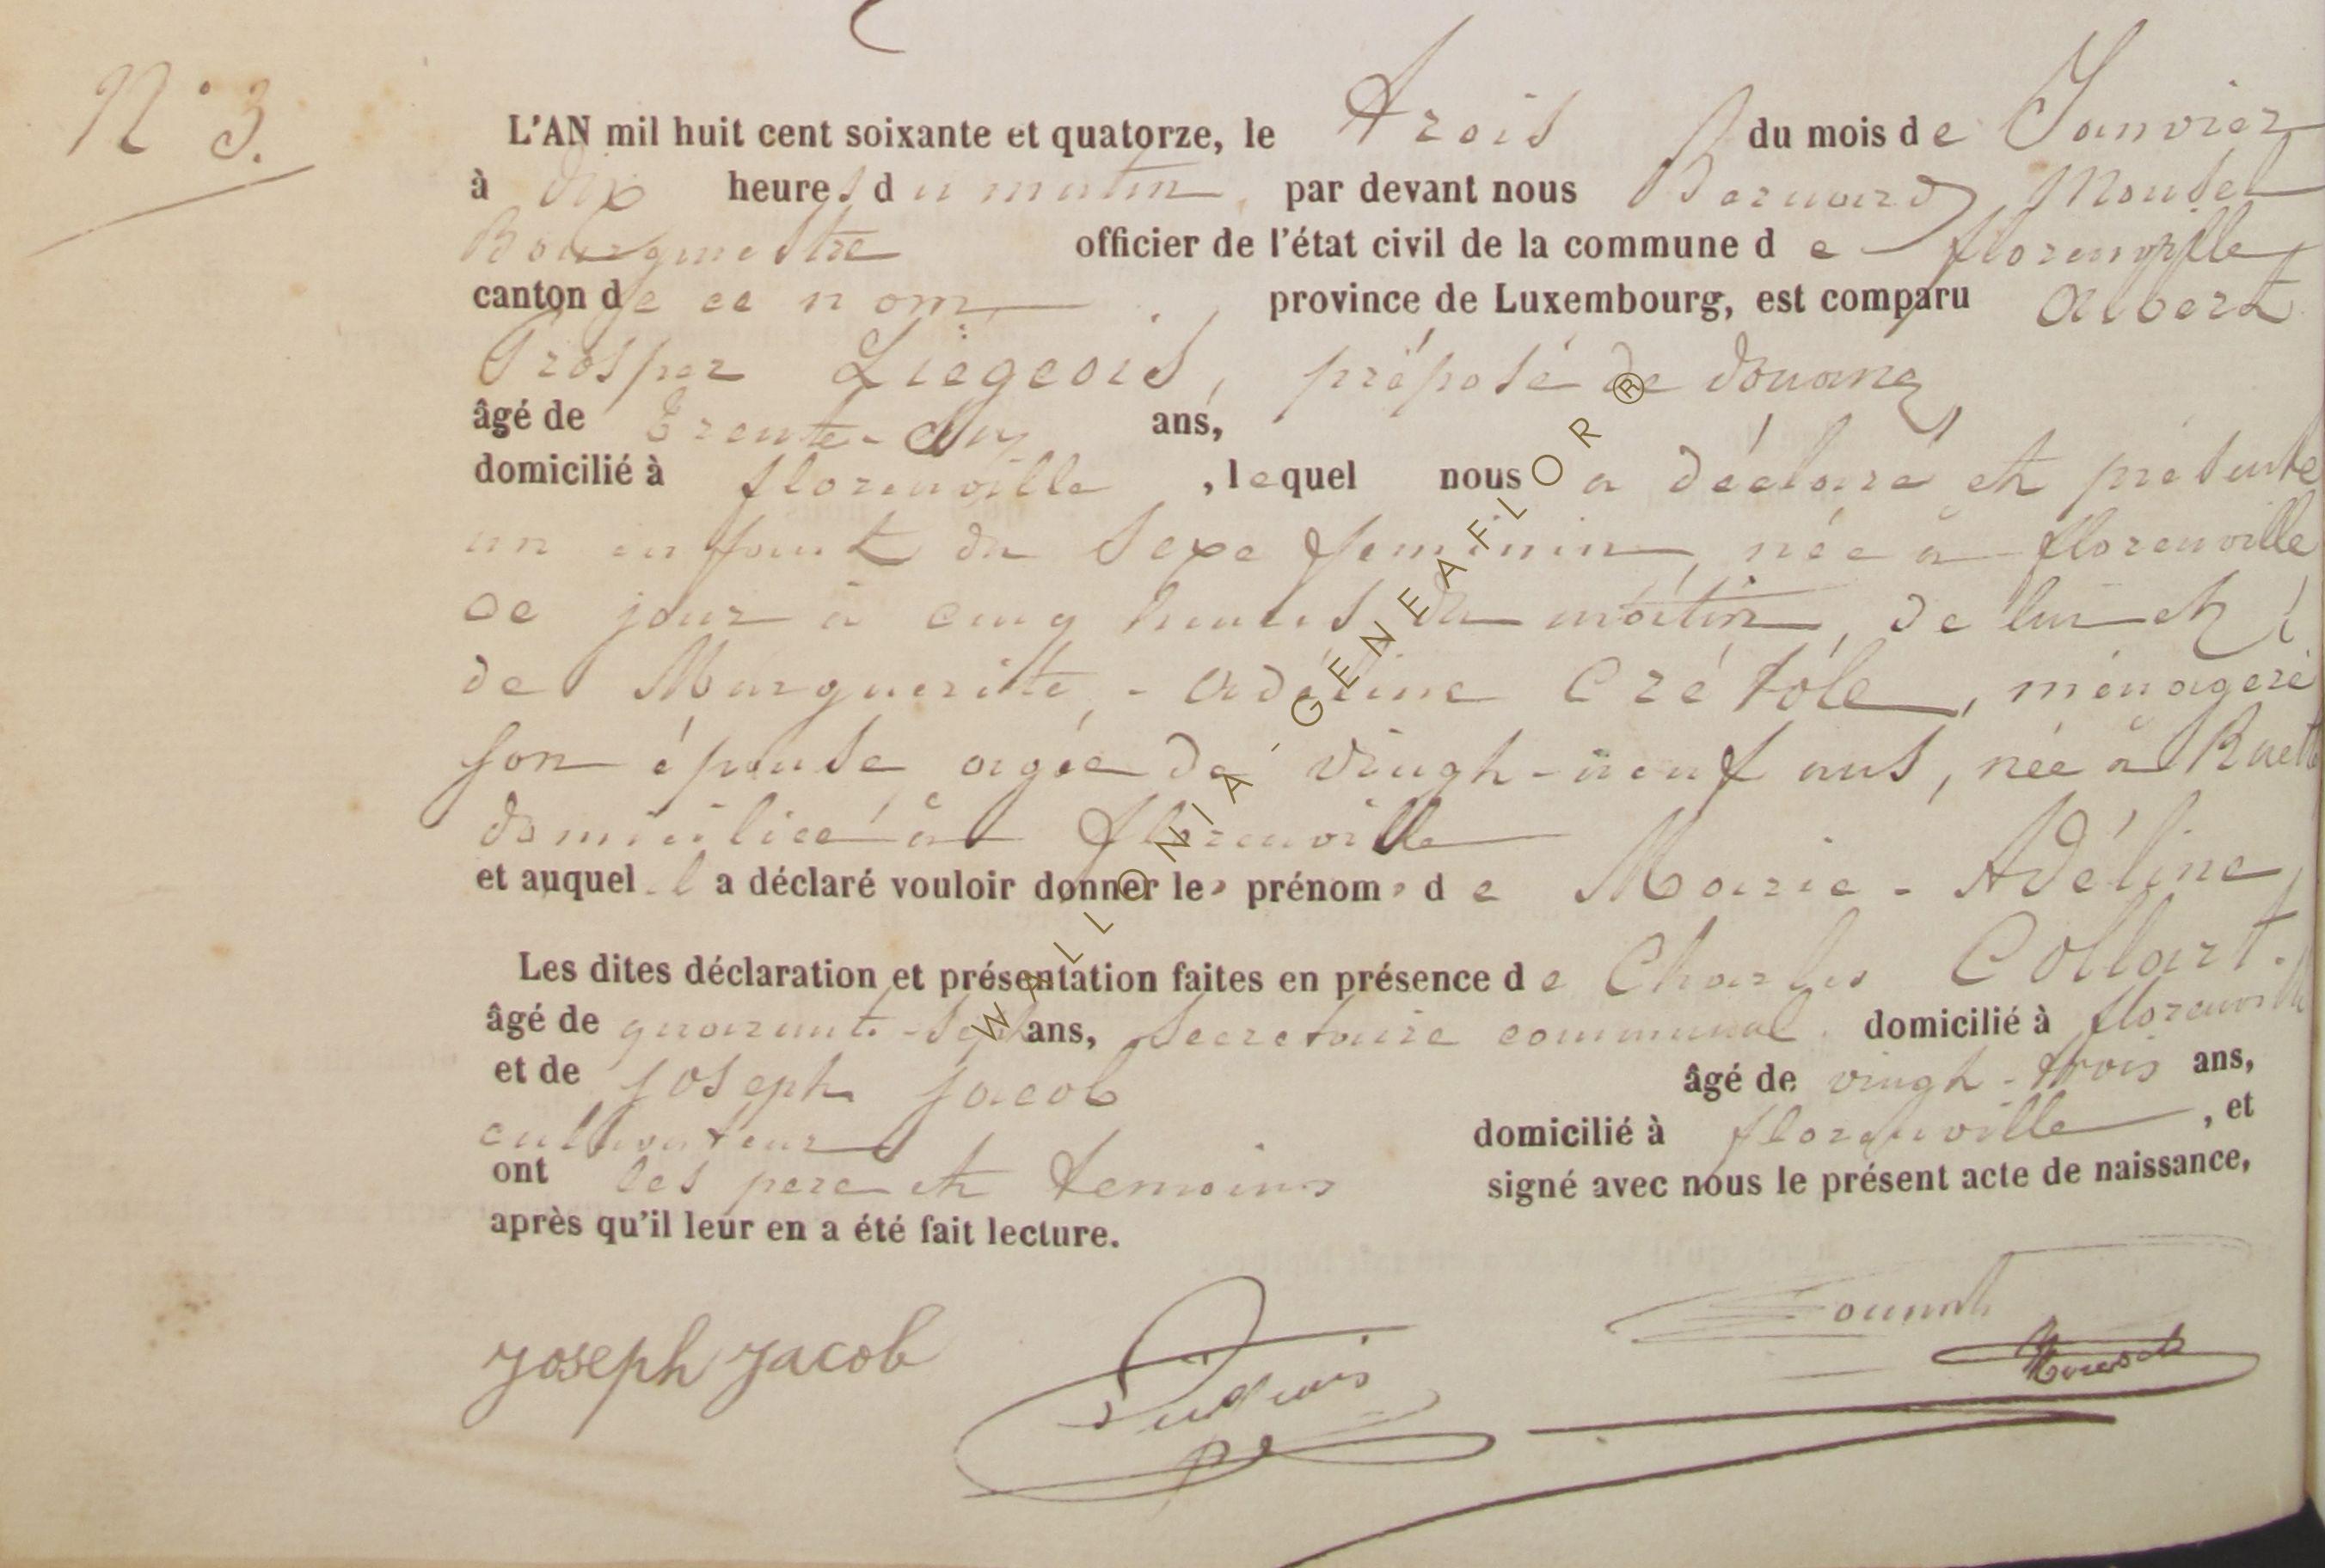 N° 3.
L'AN mil huit cent soixante et quatorze, le trois du mois de Janvier
à dix heures du matin, par devant nous Bernard
Bourgmestre officier de l'état civil de la commune de florenville
canton de ce nom province de Luxembourg, est comparu Albert
Prosper Liégeois, préposé de douane,
âgé de trente- ans,
domicilié à florenville, lequel nous a déclaré et présenté
un enfant du sexe feminin, née à florenville
ce jour à cinq heures du matin, de lui et
de Marguerite-Adéline Crétôle, ménagère
son épouse agée de vingt-neuf ans, née à Ruette
domiciliée à florenville
et auquel il a déclaré vouloir donner les prénoms de Marie-Adéline
Les dites déclaration et présentation faites en présence de Charles Collart.
âgé de quarante-sept ans, Secretaire communal. domicilié à florenville
et de Joseph Jacob âgé de vingt-trois ans,
cultivateur domicilié à florenville, et
ont les pere et temoins signé avec nous le présent acte de naissance,
après qu'il leur en a été fait lecture.
Joseph Jacob
WALLONIA - GENEAFLOR ®